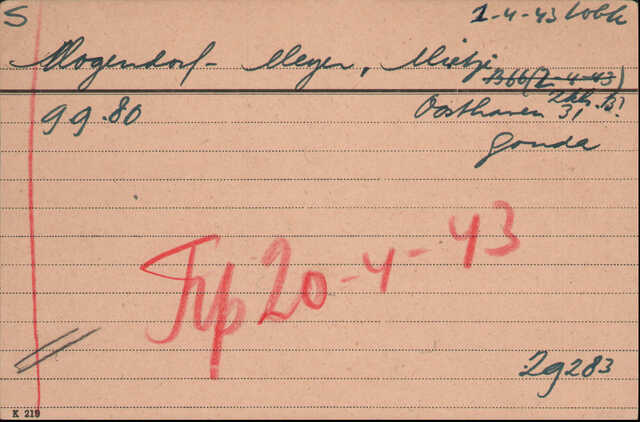 S 1-4-43 Wbk
Mogendorf- Meyer, Mietje
B66 (2-4-43)
9 9.80 Oosthaven 31
Gouda
Trp 20-4-43
29283
K 219